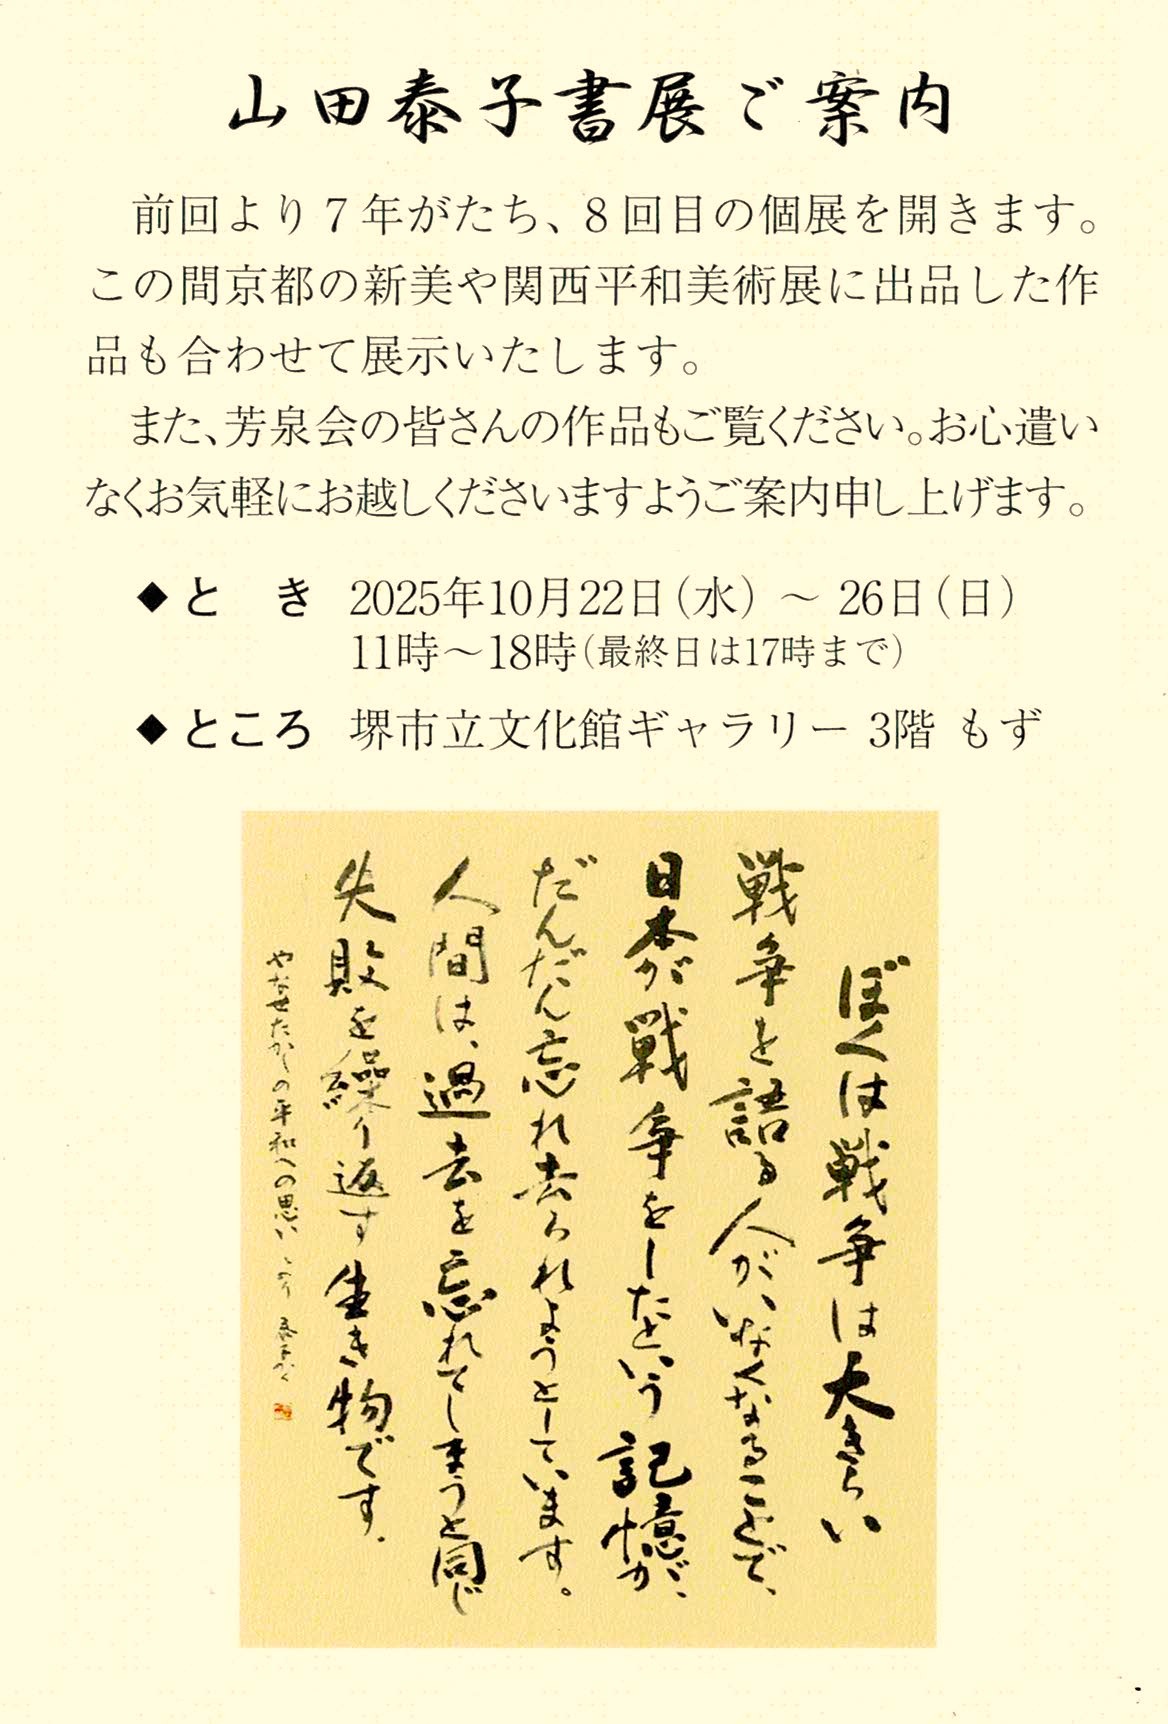 山田泰子書展ご案内
前回より7年がたち、8回目の個展を開きます。
この間京都の新美や関西平和美術展に出品した作
品も合わせて展示いたします。
また、芳泉会の皆さんの作品もご覧ください。お心遣い
なくお気軽にお越しくださいますようご案内申し上げます。
◆とき 2025年10月22日(水)～26日(日)
11時～18時(最終日は17時まで)
◆ところ 堺市立文化館ギャラリー 3階 もず
ぼくは戦争は大きらい
戦争を語る人がいなくなることで、
日本が戦争をしたという記憶が、
だんだん忘れ去られようとしています。
人間は、過去を忘れてしまうと同じ
失敗を繰り返す生き物です.
やなせたかしの平和への思い より